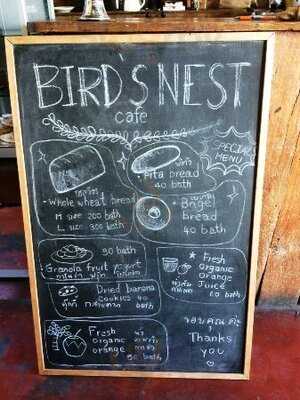 BIRD'S NEST
cafe
SPECIAL
MENU
• Whole wheat bread
M size 200 bath
L size 300 bath
• Pita bread
40 bath
• Bagel
bread
40 bath
90 bath
Granola fruit yogurt
Dried banana
cookies 40
bath
Fresh
organic
orange
Juice
60 bath
Fresh
organic
orange
90 bath
ขอบคุณค่ะ
Thanks
you